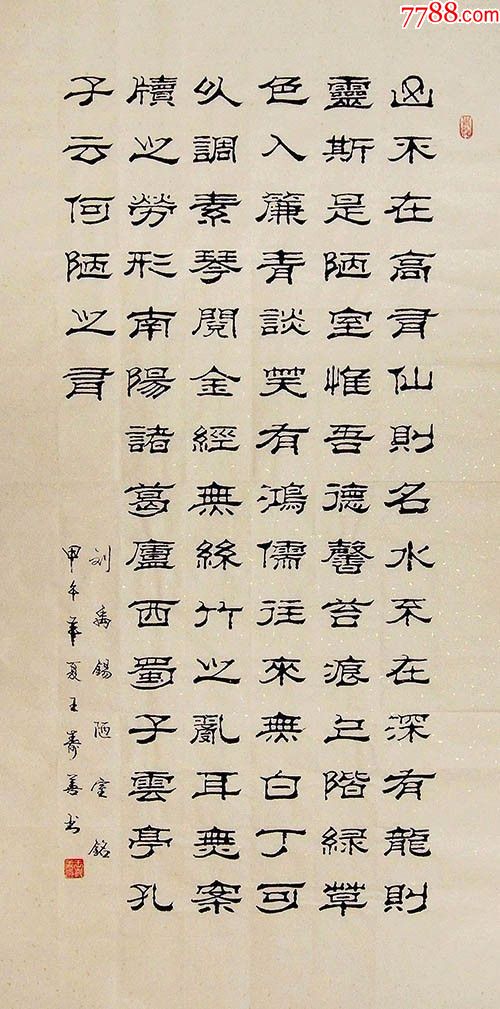 7788.com
山不在高有仙則名水不在深有龍則
靈斯是陋室惟吾德馨苔痕上階緑草
色入簾青談笑有鴻儒往來無白丁可
以調素琴閱金經無絲竹之亂耳無案
牘之勞形南陽諸葛廬西蜀子雲亭孔
子云何陋之有
刘禹錫陋室銘
甲午夏王壽善书